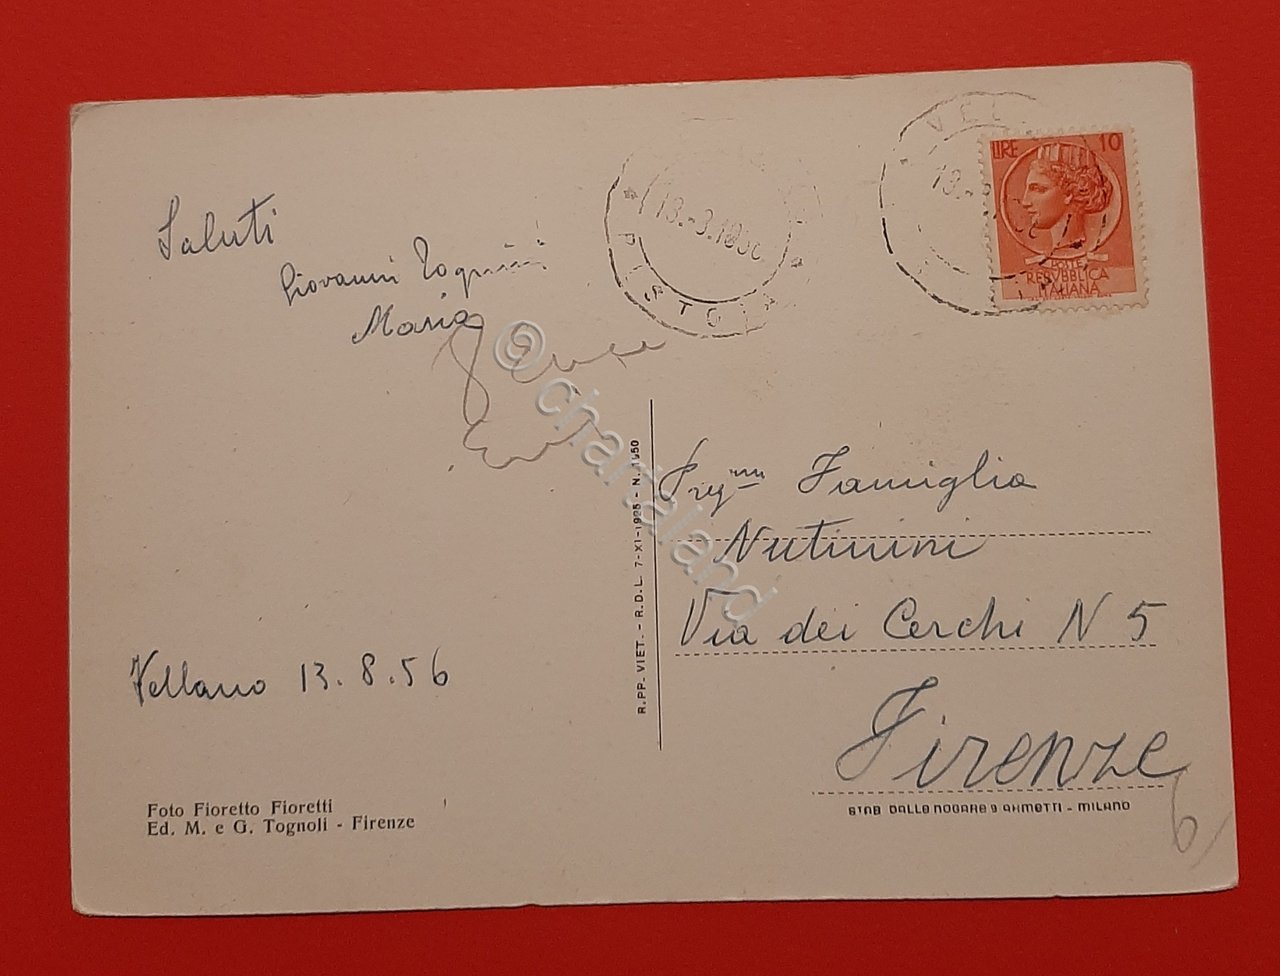 Saluti
Giovanni Tognini
Maria
Vellano 13.8.56
Foto Fioretto Fioretti
Ed. M. e G. Tognoli - Firenze
R.PP. VIET. - R.D.L. 7-XI-1925 - N. 1950
13.-8.1956
PISTOIA
VEL
13.-8
LIRE 10
POSTE
REPVBBLICA
ITALIANA
Famiglia
Nutinini
Via dei Cerchi N 5
Firenze
6
STAB DALLE NOGARE E ARMETTI - MILANO
© chartaland